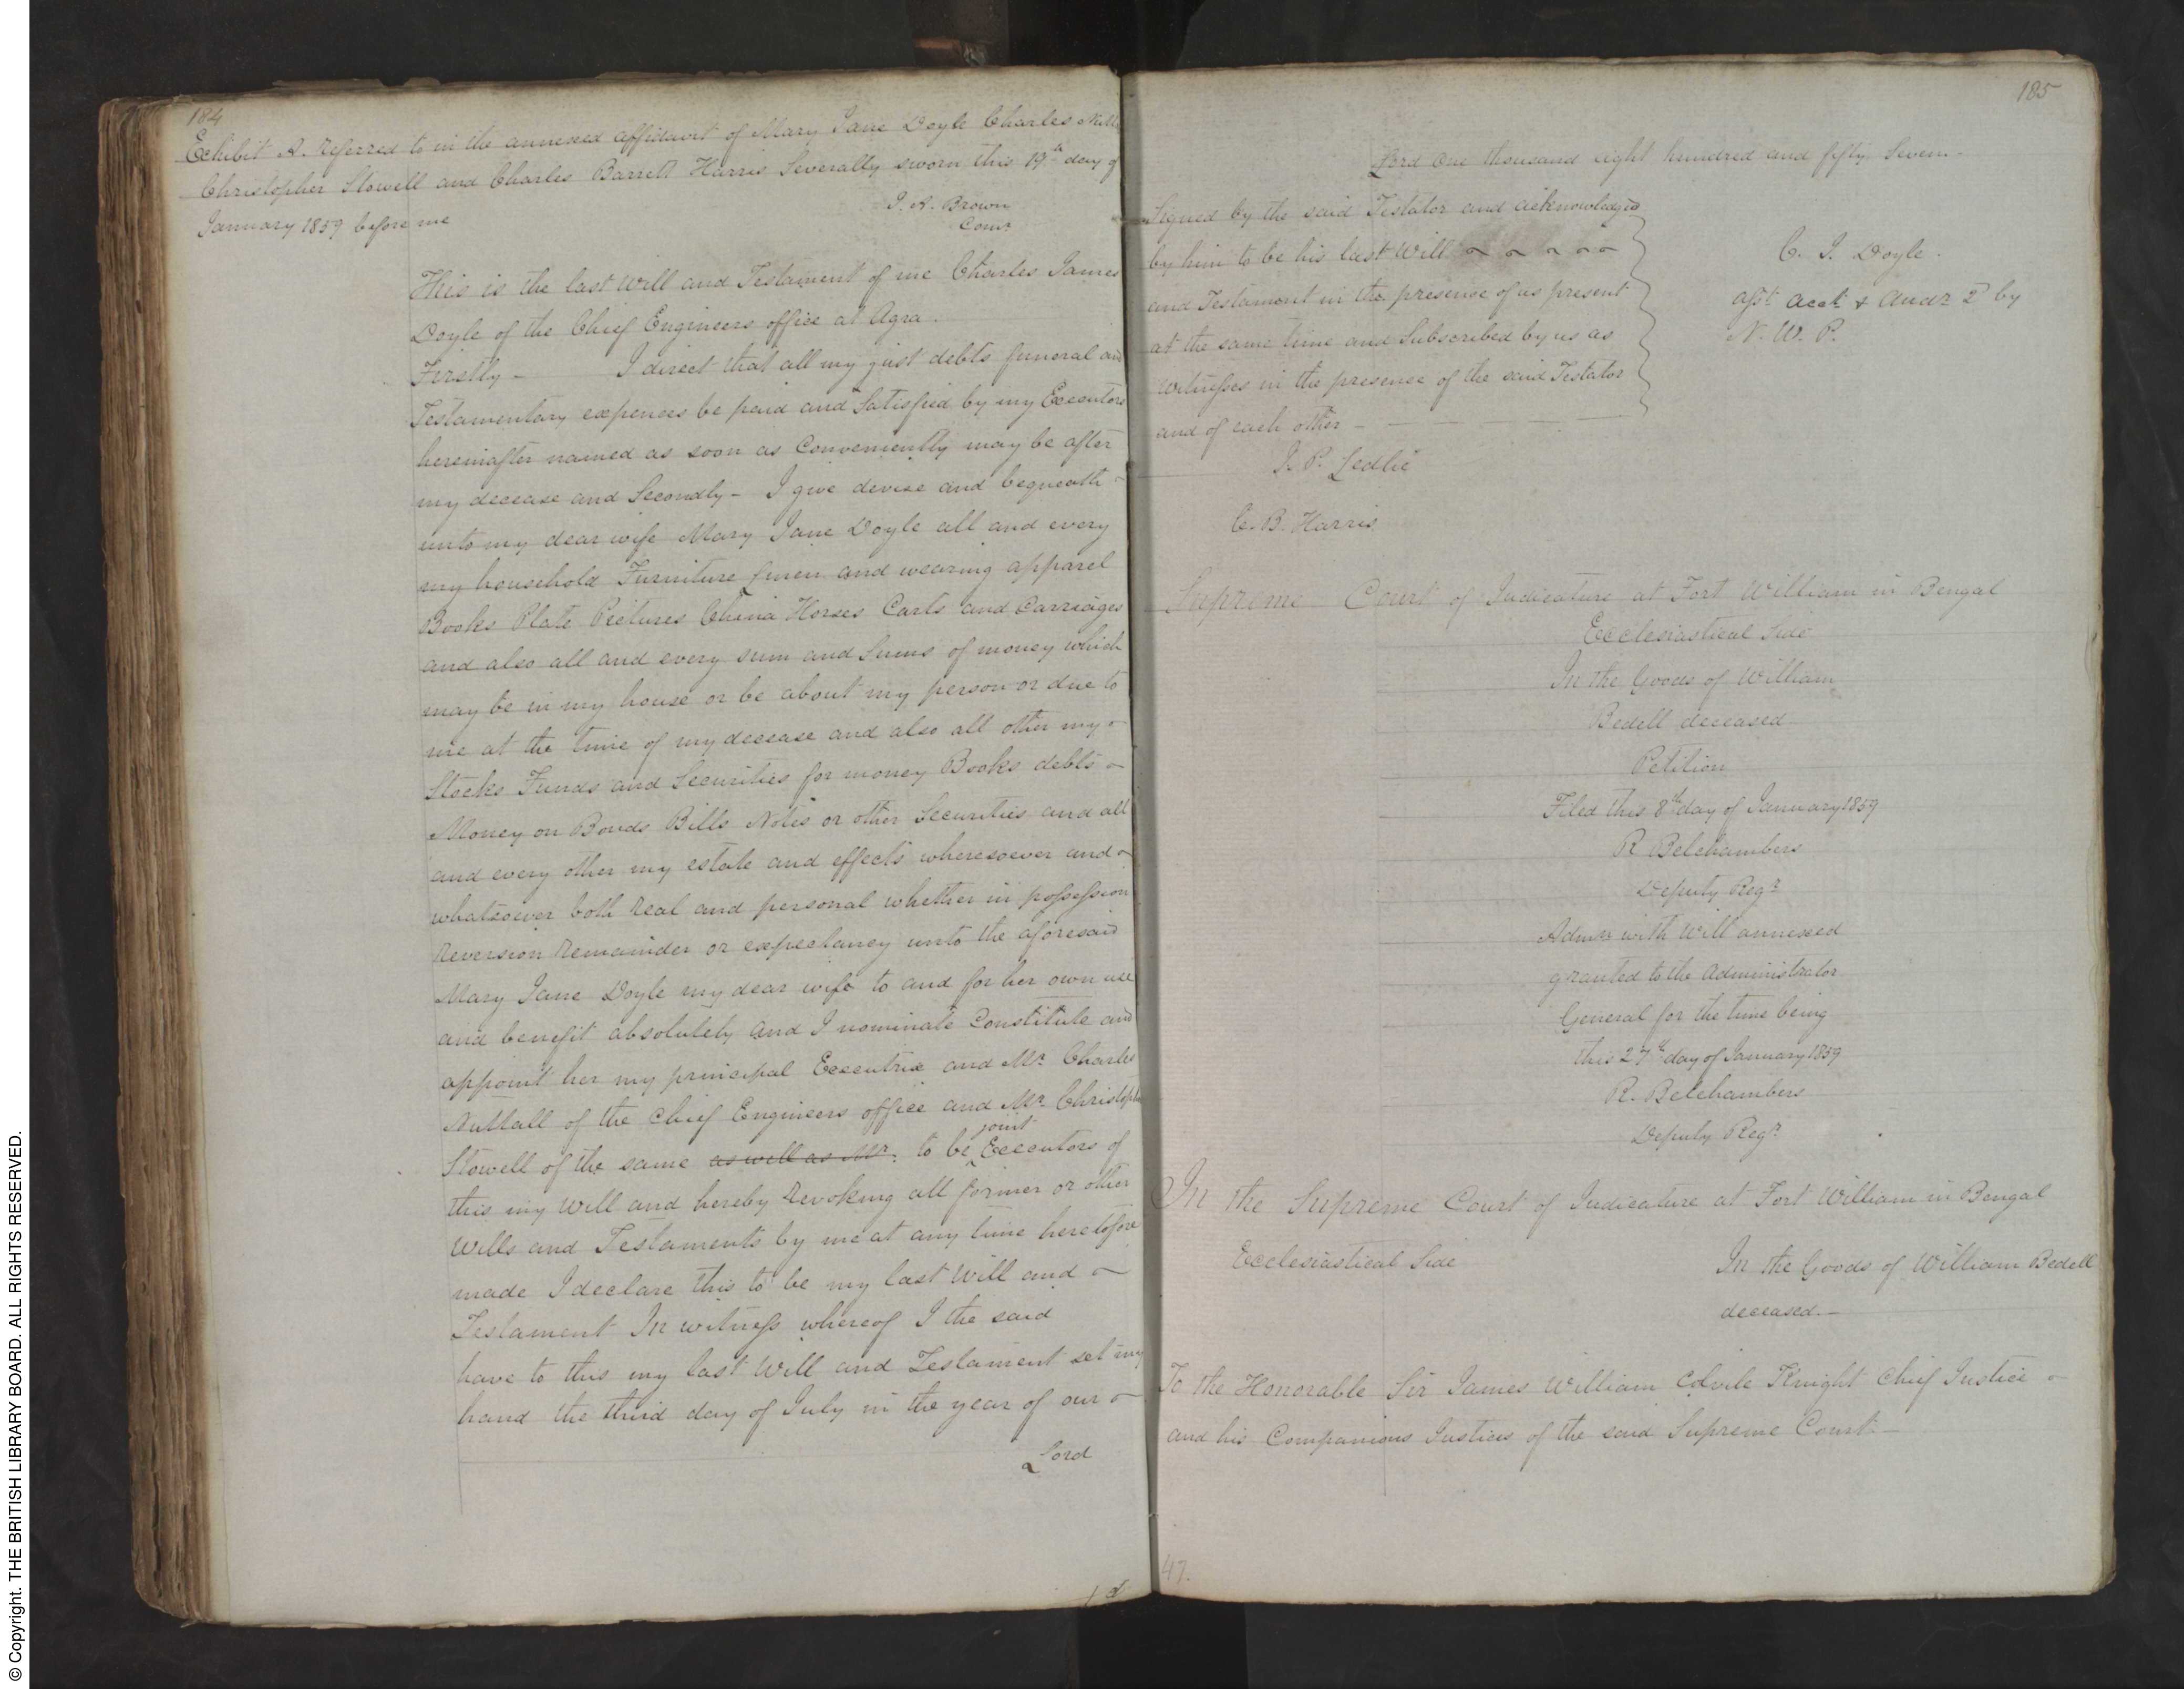 184
Exhibit A. referred to in the annexed affidavit of Mary Jane Doyle Charles
Christopher Stowell and Charles Barrett Harris Severally sworn this 19th day of
January 1859 before me
J. A. Brown
Comr
This is the last Will and Testament of me Charles James
Doyle of the Chief Engineers office at Agra.
Firstly – I direct that all my just debts funeral and
Testamentary expences be paid and Satisfied by my Executors
hereinafter named as soon as Conveniently may be after
my decease and Secondly – I give devise and bequeath
unto my dear wife Mary Jane Doyle all and every
my household Furniture linen and wearing apparel
Books Plate Pictures China Horses Carts and Carriages
and also all and every sum and Sums of money which
may be in my house or be about my person or due to
me at the time of my decease and also all other my
Stocks Funds and Securities for money Books debts
Money on Bonds Bills Notes or other Securities and all
and every other my estate and effects wheresoever and
whatsoever both real and personal whether in possession
reversion remainder or expectancy unto the aforesaid
Mary Jane Doyle my dear wife to and for her own use
and benefit absolutely and I nominate Constitute and
appoint her my principal Executrix and Mr. Charles
Nuttall of the Chief Engineers office and Mr. Christopher
Stowell of the same as well as Mr. to be joint Executors of
this my Will and hereby revoking all former or other
Wills and Testaments by me at any time heretofore
made I declare this to be my last Will and
Testament In witness whereof I the said
have to this my last Will and Testament set my
hand the third day of July in the year of our
Lord
185
Lord One thousand eight hundred and fifty Seven –
Signed by the said Testator and acknowledged
by him to be his last Will
and Testament in the presence of us present
at the same time and Subscribed by us as
Witnesses in the presence of the said Testator
and of each other –
C. J. Doyle.
Asst. Acct. & Audr
N. W. P.
J. P. Ledlie
C. B. Harris
Supreme Court of Judicature at Fort William in Bengal
Ecclesiastical Side
In the Goods of William
Bedell deceased
Petition
Filed this 8th day of January 1859
R Belchambers
Deputy Regr.
Admn with Will annexed
granted to the Administrator
General for the time being
this 27th day of January 1859
R. Belchambers
Deputy Regr.
In the Supreme Court of Judicature at Fort William in Bengal
Ecclesiastical Side
In the Goods of William Bedell
deceased. –
To the Honorable Sir James William Colvile Knight Chief Justice
and his Companions Justices of the said Supreme Court –
47.
© Copyright. THE BRITISH LIBRARY BOARD. ALL RIGHTS RESERVED.